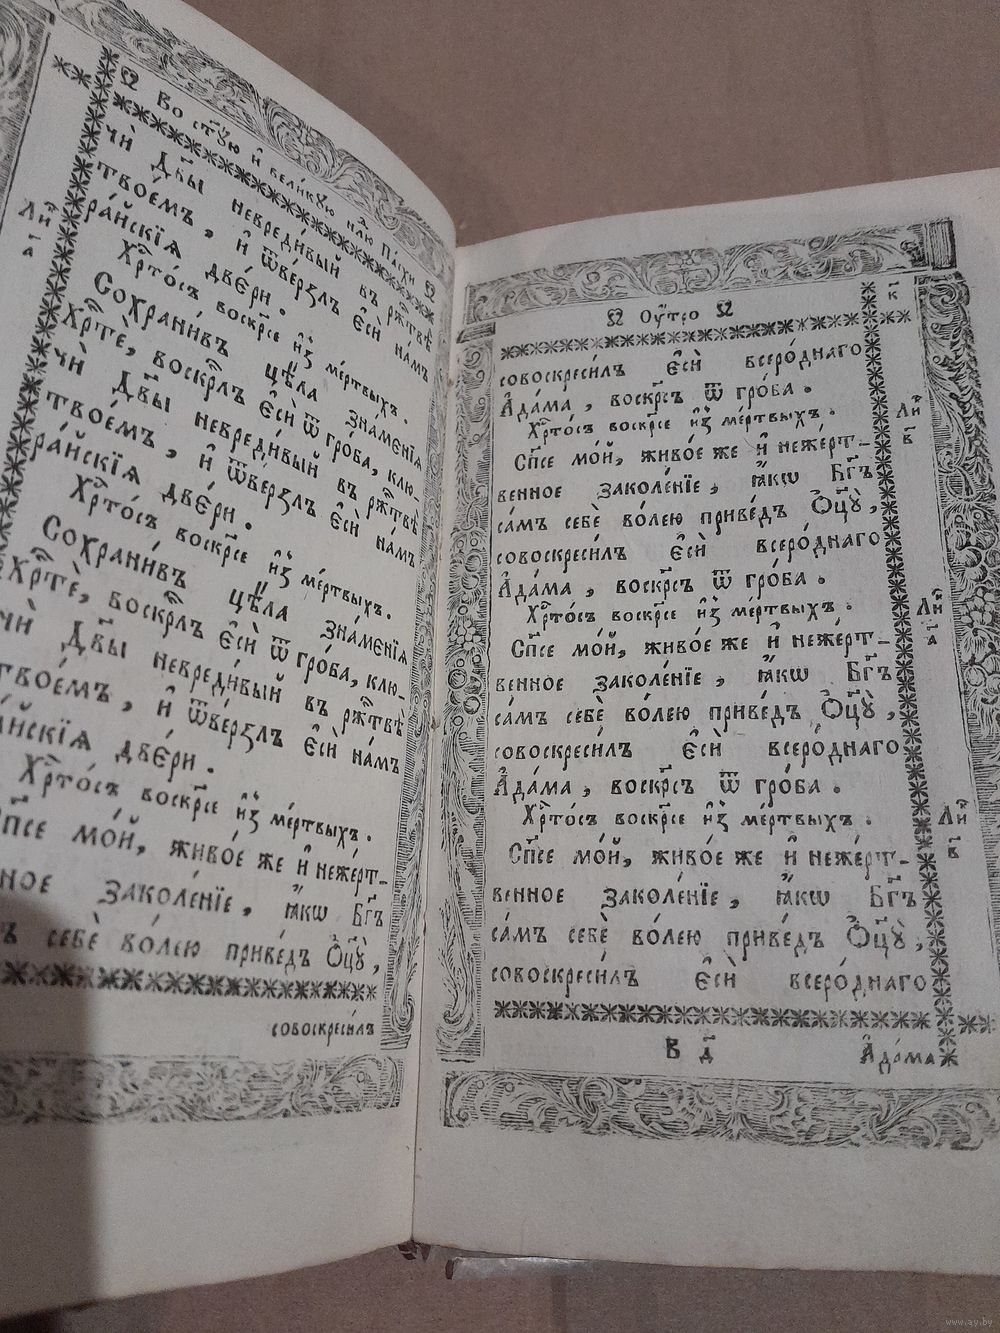 Во ст҃ꙋю и҆ вели́кꙋю нлⷣю Па́схи
чѝ Дв҃ы невреди́вый в рⷤтвѣ̀
твое́мъ, и҆ ѿве́рзлъ є҆сѝ на́мъ
ра́йскїѧ две́ри.
Хрⷭ҇то́съ воскр҃се и҆з̾ ме́ртвыхъ.
Сохрани́въ цѣ̑ла зна́менїѧ
Хрⷭ҇тѐ, воскр҃лъ є҆сѝ ѿ гро́ба, клю-
чѝ Дв҃ы невреди́вый въ рⷤтвѣ̀
твое́мъ, и҆ ѿве́рзлъ є҆сѝ на́мъ
ра́йскїѧ две́ри.
Хрⷭ҇то́съ воскр҃се и҆з̾ ме́ртвыхъ.
Сохрани́въ цѣ̑ла зна́менїѧ
Хрⷭ҇тѐ, воскр҃лъ є҆сѝ ѿ гро́ба, клю-
чѝ Дв҃ы невреди́вый въ рⷤтвѣ̀
твое́мъ, и҆ ѿве́рзлъ є҆сѝ на́мъ
ра́йскїѧ две́ри.
Хрⷭ҇то́съ воскр҃се и҆з̾ ме́ртвыхъ.
Сп҃се мо́й, живо́е же и҆ неже́рт-
венное заколе́нїе, ꙗ҆́кѡ Бг҃ъ
са́мъ себѐ во́лею приве́дъ Ѻ҆ц҃ꙋ̀,
совоскреси́лъ
Лиⷭ҇
а҃
Оу҆́тро
к҃
совоскреси́лъ є҆сѝ всеро́днаго
А҆да́ма, воскр҃съ ѿ гро́ба.
Хрⷭ҇то́съ воскр҃се и҆з̾ ме́ртвыхъ.
Сп҃се мо́й, живо́е же и҆ неже́рт-
венное заколе́нїе, ꙗ҆́кѡ Бг҃ъ
са́мъ себѐ во́лею приве́дъ Ѻ҆ц҃ꙋ̀,
совоскреси́лъ є҆сѝ всеро́днаго
А҆да́ма, воскр҃съ ѿ гро́ба.
Хрⷭ҇то́съ воскр҃се и҆з̾ ме́ртвыхъ.
Сп҃се мо́й, живо́е же и҆ неже́рт-
венное заколе́нїе, ꙗ҆́кѡ Бг҃ъ
са́мъ себѐ во́лею приве́дъ Ѻ҆ц҃ꙋ̀,
совоскреси́лъ є҆сѝ всеро́днаго
А҆да́ма, воскр҃съ ѿ гро́ба.
Хрⷭ҇то́съ воскр҃се и҆з̾ ме́ртвыхъ.
Сп҃се мо́й, живо́е же и҆ неже́рт-
венное заколе́нїе, ꙗ҆́кѡ Бг҃ъ
са́мъ себѐ во́лею приве́дъ Ѻ҆ц҃ꙋ̀,
совоскреси́лъ є҆сѝ всеро́днаго
В д҃ А҆да́ма
Лиⷭ҇
в҃
Лиⷭ҇
а҃
Лиⷭ҇
в҃
www.ay.by